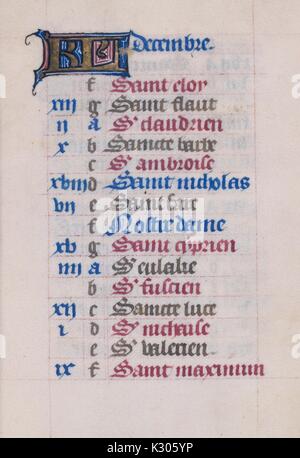 KL decembre.
f Saint eloy
xiii g Saint flaut
ii a St claudrien
x b Saincte barbe
c St ambroise
xviii d Saint nicholas
vii e Saint fare
f Nostre dame
xv g Saint ciprien
iiii a St eulalie
b St fuscien
xii c Saincte luce
i d St nichaise
e St valerien
ix f Saint maximiun
alamy
KR305YP